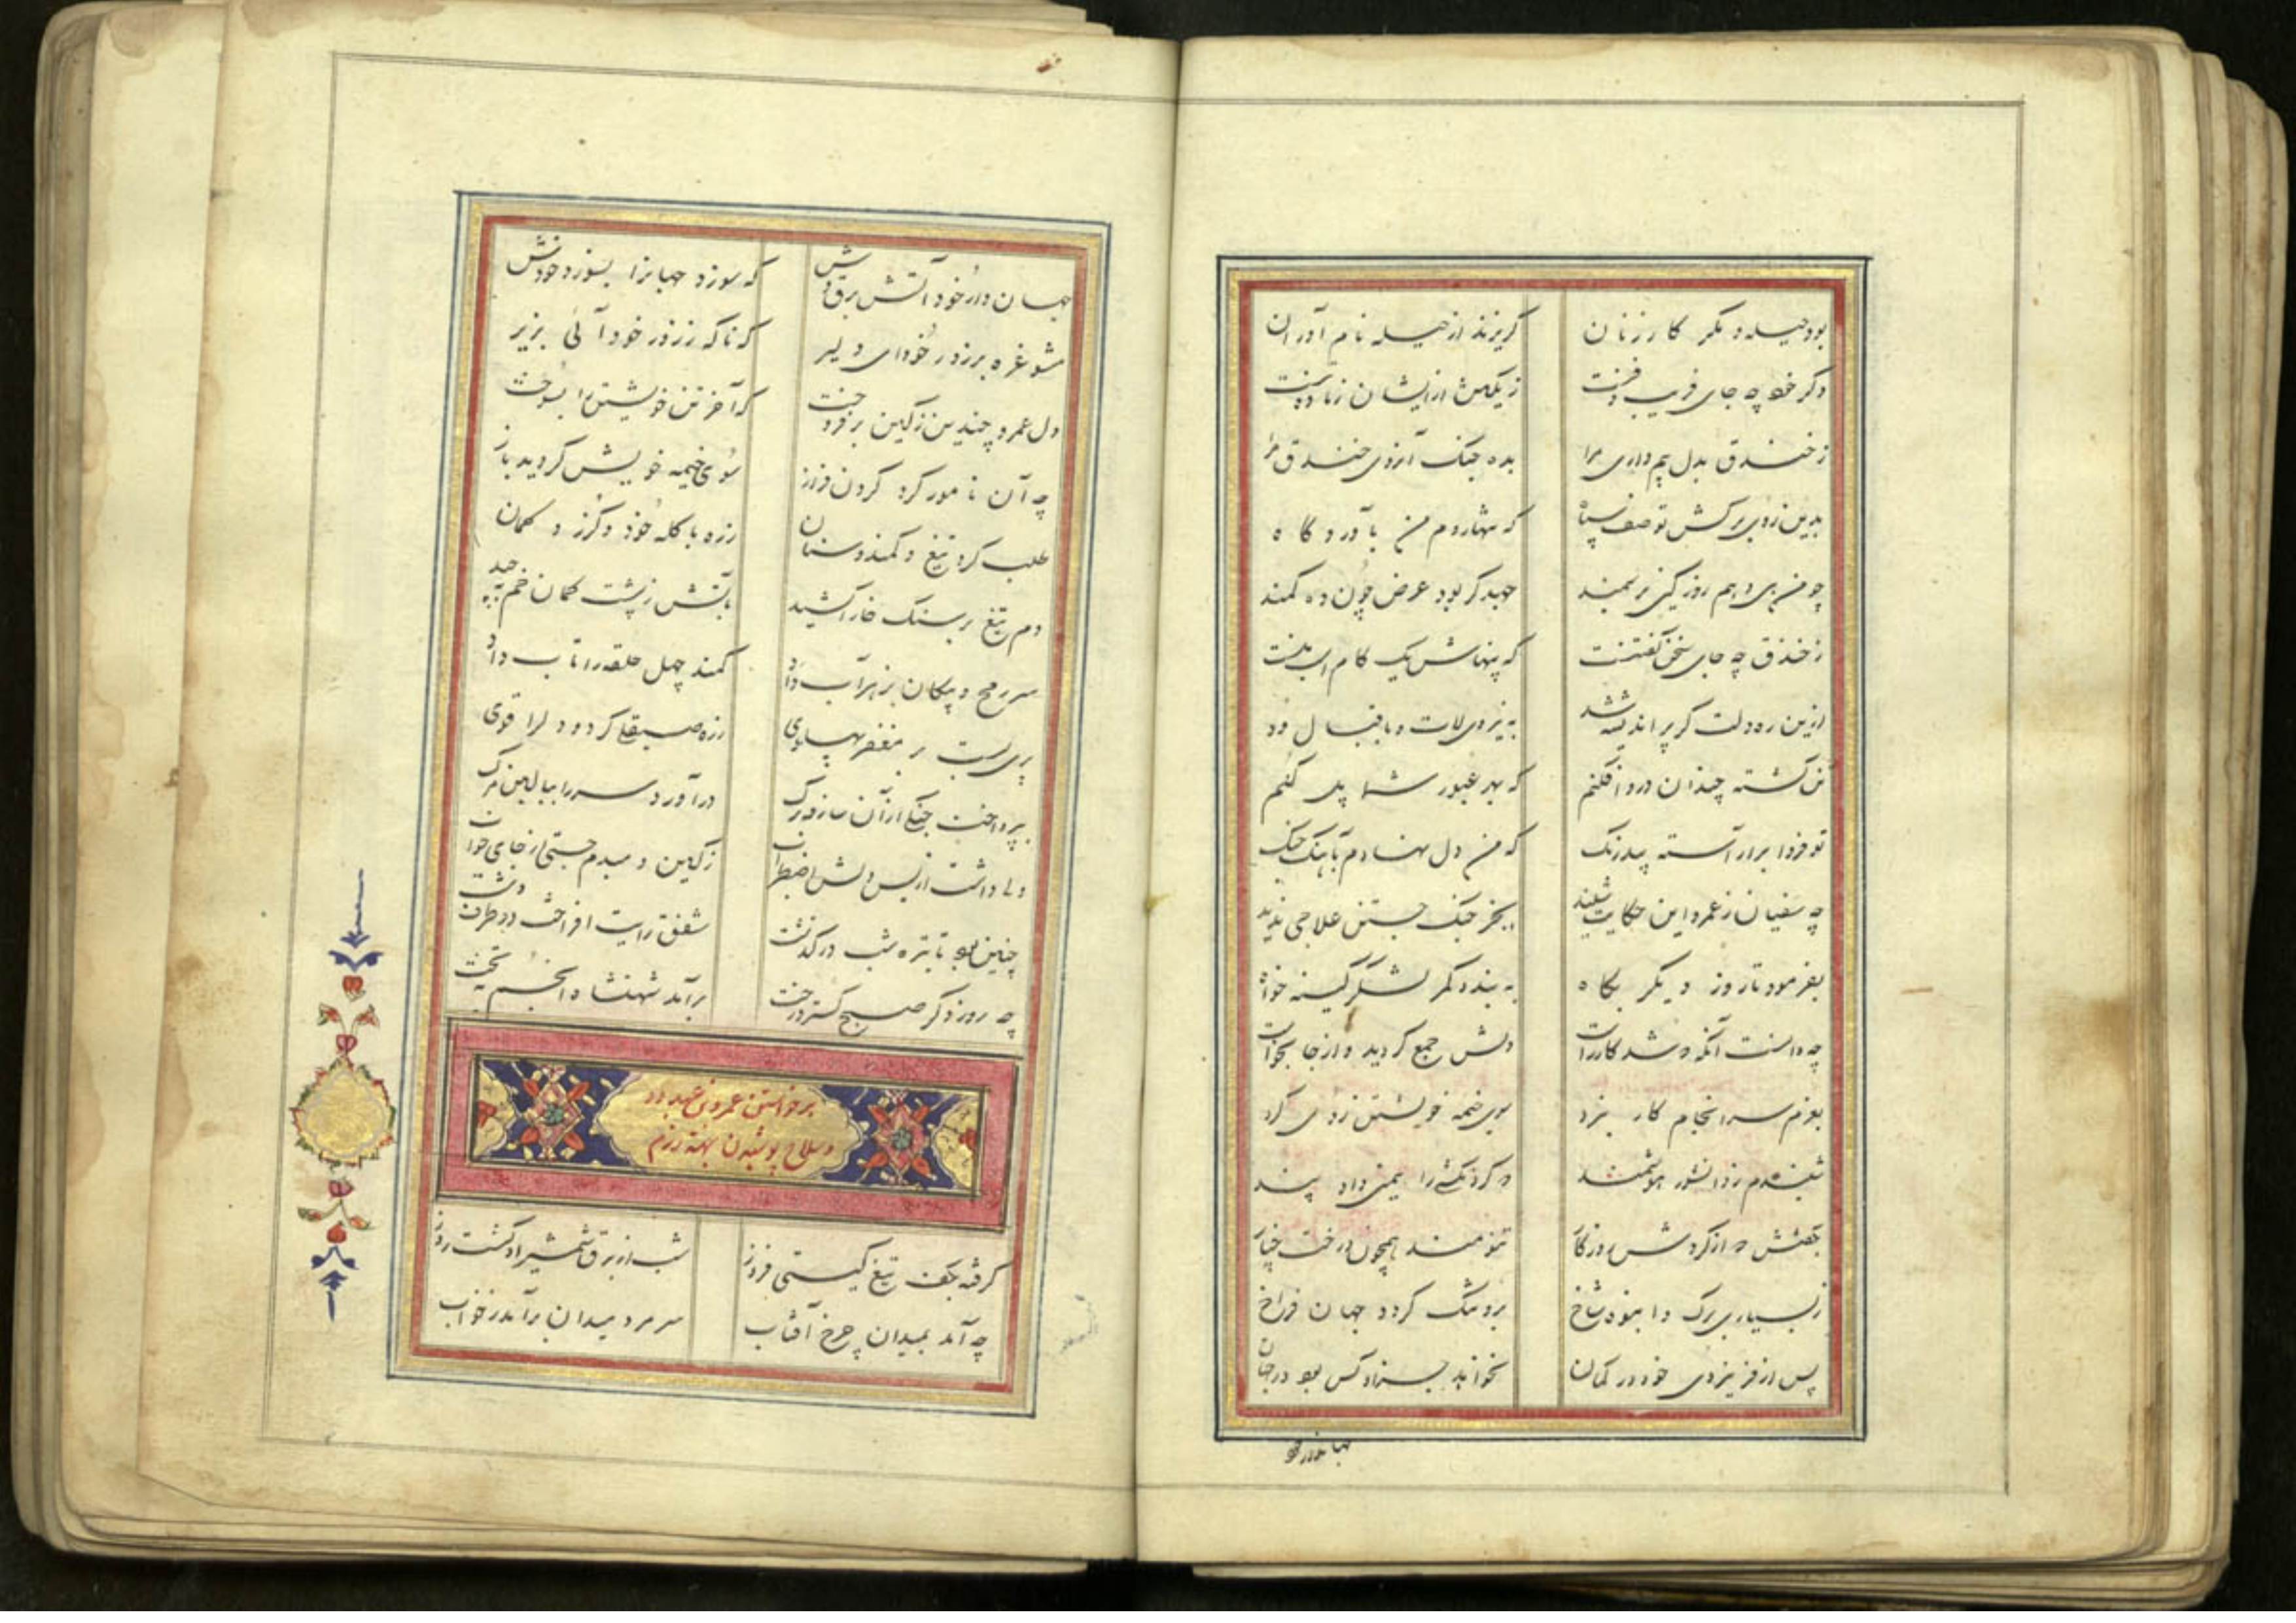 بود حیله و مکر کار زنان
گریزند از حیله نام آوران
دگر خود چه جای فریب و فنست
ز یکتن از ایشان
ز خندق بدل بیم داری مرا
بده جنک آنروی خندق مرا
بدین روی برکش تو صف سپاه
که تنها روم من بآوردکاه
چو من پی دهم روز کین بر سمند
جهد کر بود عرض چون ده کمند
ز خندق چه جای سخن کفتنست
که پهناش یک کام اسب منست
ازین ره دلت کر پر اندیشه شد
به نیروی لات و باقبال خود
تن کشته چندان درو افکنم
که بهر عبور شما پل کنم
تو فردا برار آسته بیدرنک
که من دل نهادم بآهنک جنک
چه سفیان ز عمرو این حکایت شنید
بجز جنک جستن علاجی ندید
بفرمود تا روز دیکر پکاه
به بندد کمر لشکر کینه خواه
چه دانست آنکه شد کار راست
دلش جمع کردید و از جا بخواست
بعزم سرانجام کار نبرد
سوی خیمه خویشتن روی کرد
شنیدم ز دانشور هوشمند
که کردنکشی را یمی داد پند
بکفتش که از کردش روزکار
تنومند همچون درخت چنار
ز بسیاری برک و انبوه شاخ
بدو تنک کردد جهان فراخ
پس از فر نیروی خود در کمان
نخواند جز او کس بود در جهان
جهاندار خود
جهان دار خود آتش برق وش
که سوزد جهانرا بسوزد خودش
مشو غره بر زور خود ای دلیر
که ناکه ز زور خود آئی بزیر
دل عمرو چندین ز کین برفروخت
که آخر تن خویشتن را بسوخت
چه آن نامور کرد کردن فراز
سوی خیمه خویش کردید باز
طلب کرد تیغ و کمند و سنان
زره با کله خود و کرز و کمان
دم تیغ بر سنک خارا کشید
بآتش ز پشت کمان خم
سر رمح و پیکان بزهرآب داد
کمند چهل حلقه را تاب داد
پری بست بر مغفر پهلوی
زره صیقلی کرد و دل را قوی
بپرداخت جنکی از آن ساز و برک
درآورد سر را ببالین مرک
ولی داشت از بس دلش اضطراب
ز کین دمبدم جستی از جای خواب
چنین بود تا تیره شب درکذشت
شفق رایت افراخت در طرف دشت
چه روز دکر صبح کسترد رخت
برآمد شهنشاه انجم بتخت
برخواستن عمرو بن عبدود
و سلاح پوشیدن بهته رزم
کرفته بکف تیغ کیتی فروز
شب از برق شمشیر او کشت روز
چه آمد بمیدان چرخ آفتاب
سر مرد میدان برآمد ز خواب